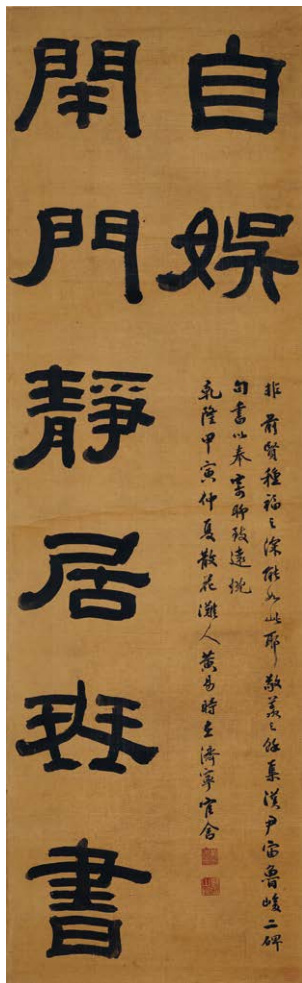 閉門靜居琴書
自娛
非前賢種福之深能如此耶敬羡之餘集漢尹宙魯峻二碑
句書以奉寄聊致遠忱
乾隆甲寅仲夏散花灘人黃易時在濟寧官舍